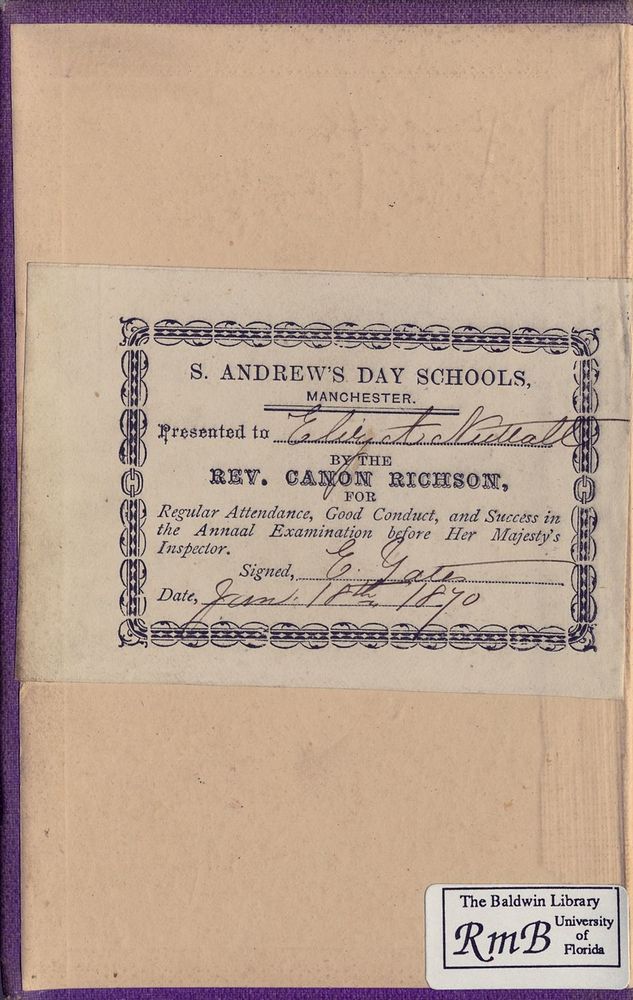 S. ANDREW'S DAY SCHOOLS,
MANCHESTER.
Presented to Elizth Nuttall
BY THE
REV. CANON RICHSON,
FOR
Regular Attendance, Good Conduct, and Success in
the Annaal Examination before Her Majesty's
Inspector.
Signed, E. Yates
Date, Jan. 18th, 1870
The Baldwin Library
RmB
University
of
Florida